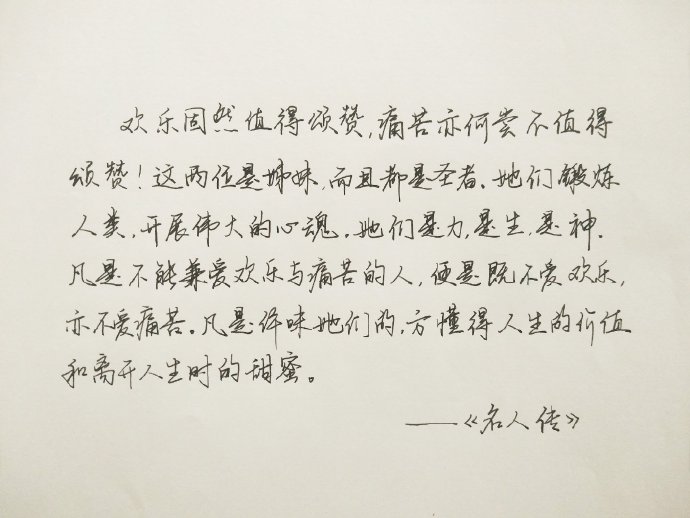 欢乐固然值得颂赞,痛苦亦何尝不值得
颂赞!这两位是姊妹,而且都是圣者。她们锻炼
人类,开展伟大的心魂。她们是力,是生,是神.
凡是不能兼爱欢乐与痛苦的人,便是既不爱欢乐,
亦不爱痛苦。凡是体味她们的,方懂得人生的价值
和离开人生时的甜蜜。
——《名人传》